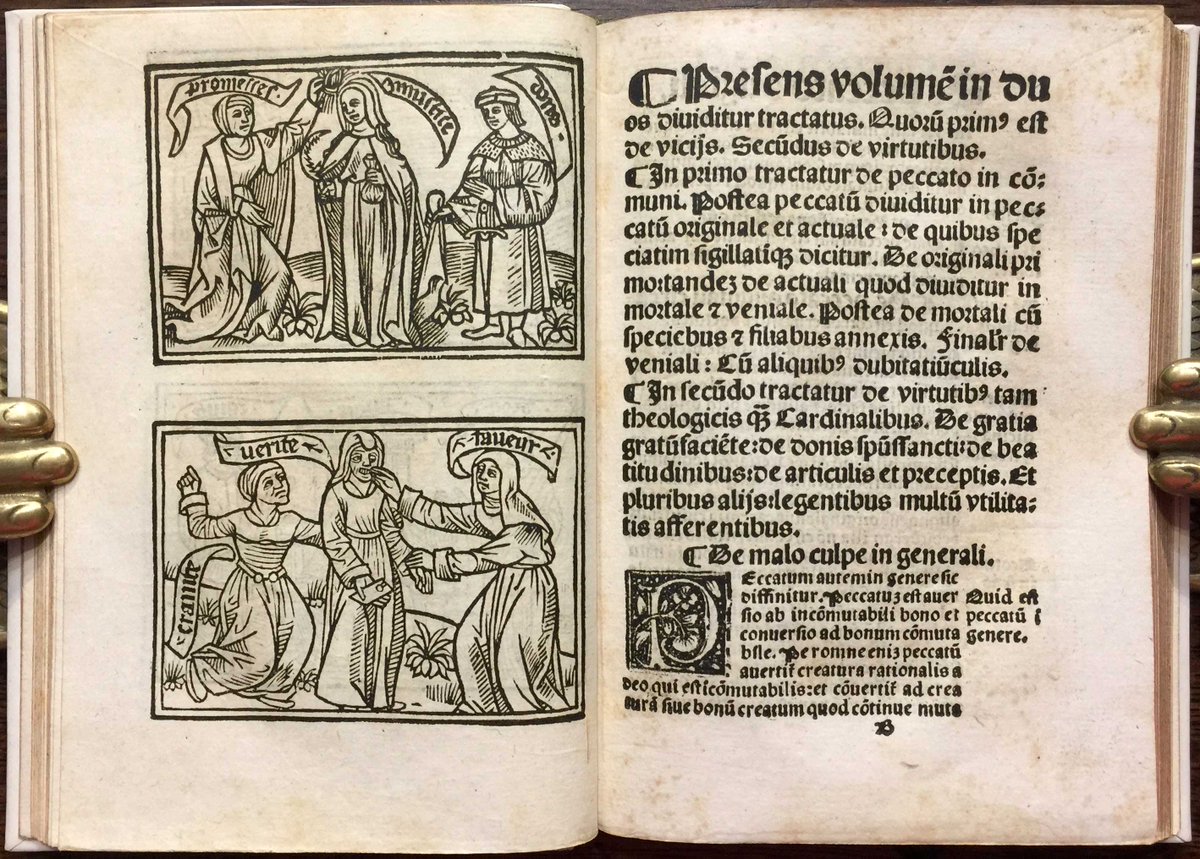 promesses.
iustice
dons.
verite
faueur
crainte
Presens volumē in du
os diuiditur tractatus. Quorū primꝰ est
de vicijs. Secūdus de virtutibus.
In primo tractatur de peccato in cō⸗
muni. Postea peccatū diuiditur in pec⸗
catū originale et actuale: de quibus spe
ciatim sigillatimqꝫ dicitur. De originali pri
mo: tandeꝫ de actuali quod diuiditur in
mortale ⁊ veniale. Postea de mortali cū
speciebus ⁊ filiabus annexis. Finalr̄ de
veniali: Cū aliquibꝰ dubitatiūculis.
In secūdo tractatur de virtutibꝰ tam
theologicis qꝫ̄ Cardinalibus. De gratia
gratūfaciēte: de donis spūssancti: de bea
titudinibus: de articulis et preceptis. Et
pluribus alijs: legentibus multū vtilita⸗
tis afferentibus.
De malo culpe in generali.
PEccatum autem in genere sic
diffinitur. Peccatuꝫ est auer
sio ab incōmutabili bono et
conuersio ad bonum cōmuta
bile. Per omne eniꝫ peccatū
auertit̄ creatura rationalis a
deo qui est icōmutabilis: et cōuertit̄ ad crea
turā siue bonū creatum quod cōtinue muta
Quid est
peccatū ī
genere.
B